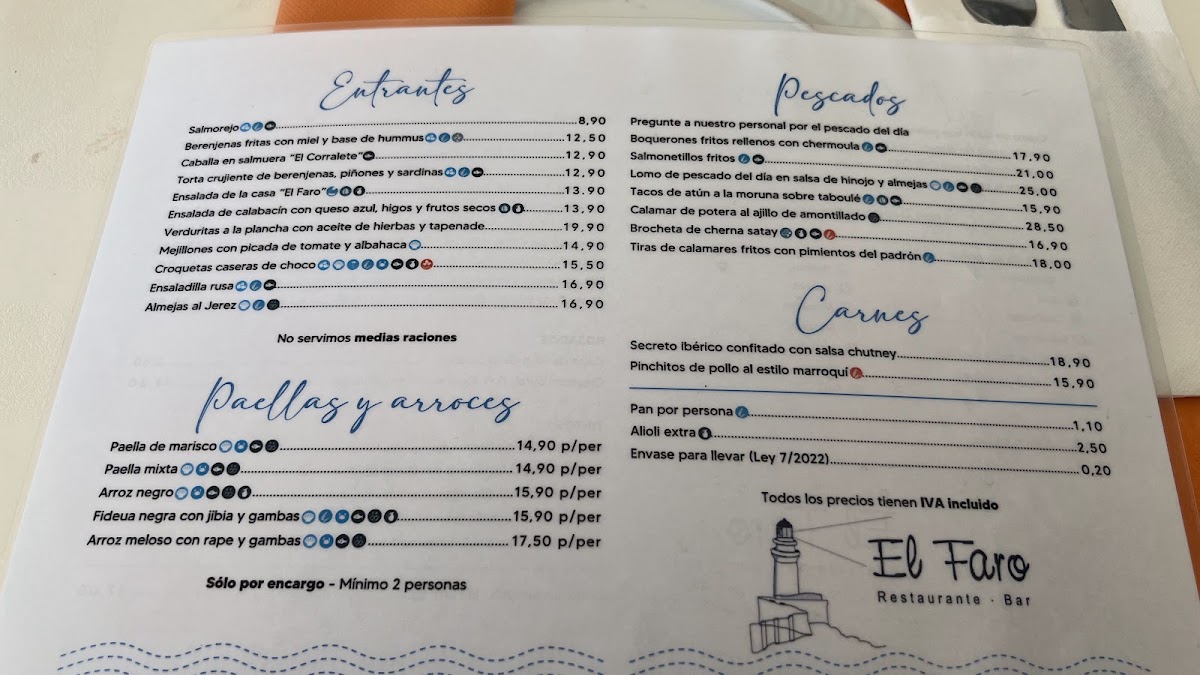 Entrantes
Salmorejo 8,90
Berenjenas fritas con miel y base de hummus 12,50
Caballa en salmuera "El Corralete" 12,90
Torta crujiente de berenjenas, piñones y sardinas 12,90
Ensalada de la casa "El Faro" 13.90
Ensalada de calabacín con queso azul, higos y frutos secos 13,90
Verduritas a la plancha con aceite de hierbas y tapenade 19,90
Mejillones con picada de tomate y albahaca 14,90
Croquetas caseras de choco 15,50
Ensaladilla rusa 16,90
Almejas al Jerez 16,90
No servimos medias raciones
Paellas y arroces
Paella de marisco 14,90 p/per
Paella mixta 14,90 p/per
Arroz negro 15,90 p/per
Fideua negra con jibia y gambas 15,90 p/per
Arroz meloso con rape y gambas 17,50 p/per
Sólo por encargo - Mínimo 2 personas
Pescados
Pregunte a nuestro personal por el pescado del día
Boquerones fritos rellenos con chermoula 17,90
Salmonetillos fritos 21,00
Lomo de pescado del día en salsa de hinojo y almejas 25,00
Tacos de atún a la moruna sobre taboulé 15,90
Calamar de potera al ajillo de amontillado 28,50
Brocheta de cherna satay 16,90
Tiras de calamares fritos con pimientos del padrón 18,00
Carnes
Secreto ibérico confitado con salsa chutney 18,90
Pinchitos de pollo al estilo marroquí 15,90
Pan por persona 1,10
Alioli extra 2,50
Envase para llevar (Ley 7/2022) 0,20
Todos los precios tienen IVA incluido
El Faro
Restaurante · Bar